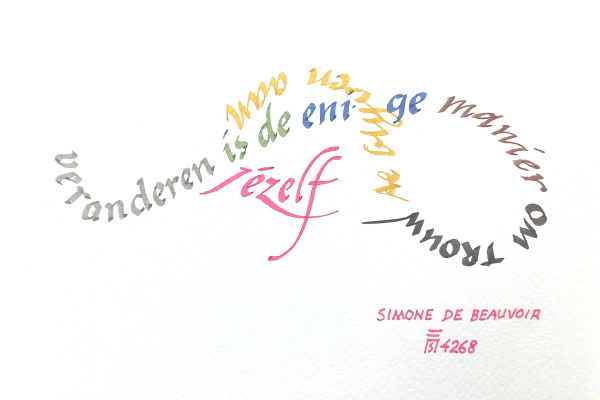 veranderen is de enige manier om TROUW te blijven aan jezelf
SIMONE DE BEAUVOIR
4268